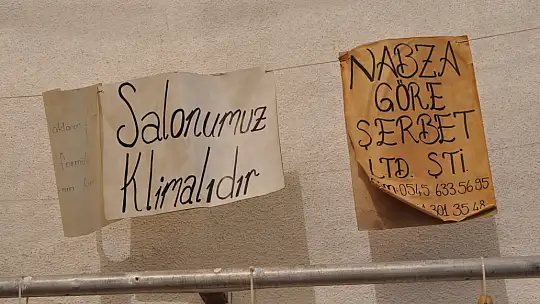 Salonumuz
Klimalıdır
NABZA
GÖRE
ŞERBET
LTD. ŞTİ.
0545 633 56 95
301 35 48